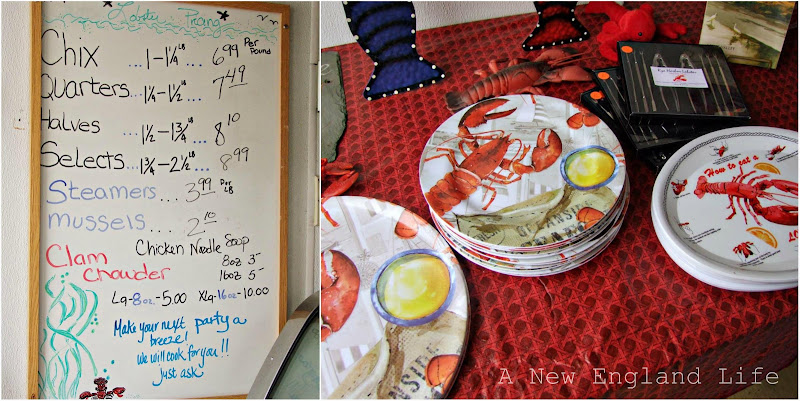 Lobster Pricing
Chix ...1-1¼ LB 6 99 Per Pound
Quarters ...1¼-1½ LB ... 7 49
Halves ...1½-1¾ LB .. 8 10
Selects... 1¾-2½ LB ... 8 99
Steamers... 3 99 Per LB
mussels.... 2 10
Chicken Noodle Soup
8oz 3-
16oz 5-
Clam
chowder
Lg-8oz.-5.00 XLg-16oz-10.00
Make your next party a
breeze!
we will cook for you!!
just ask
How to eat a
A New England Life